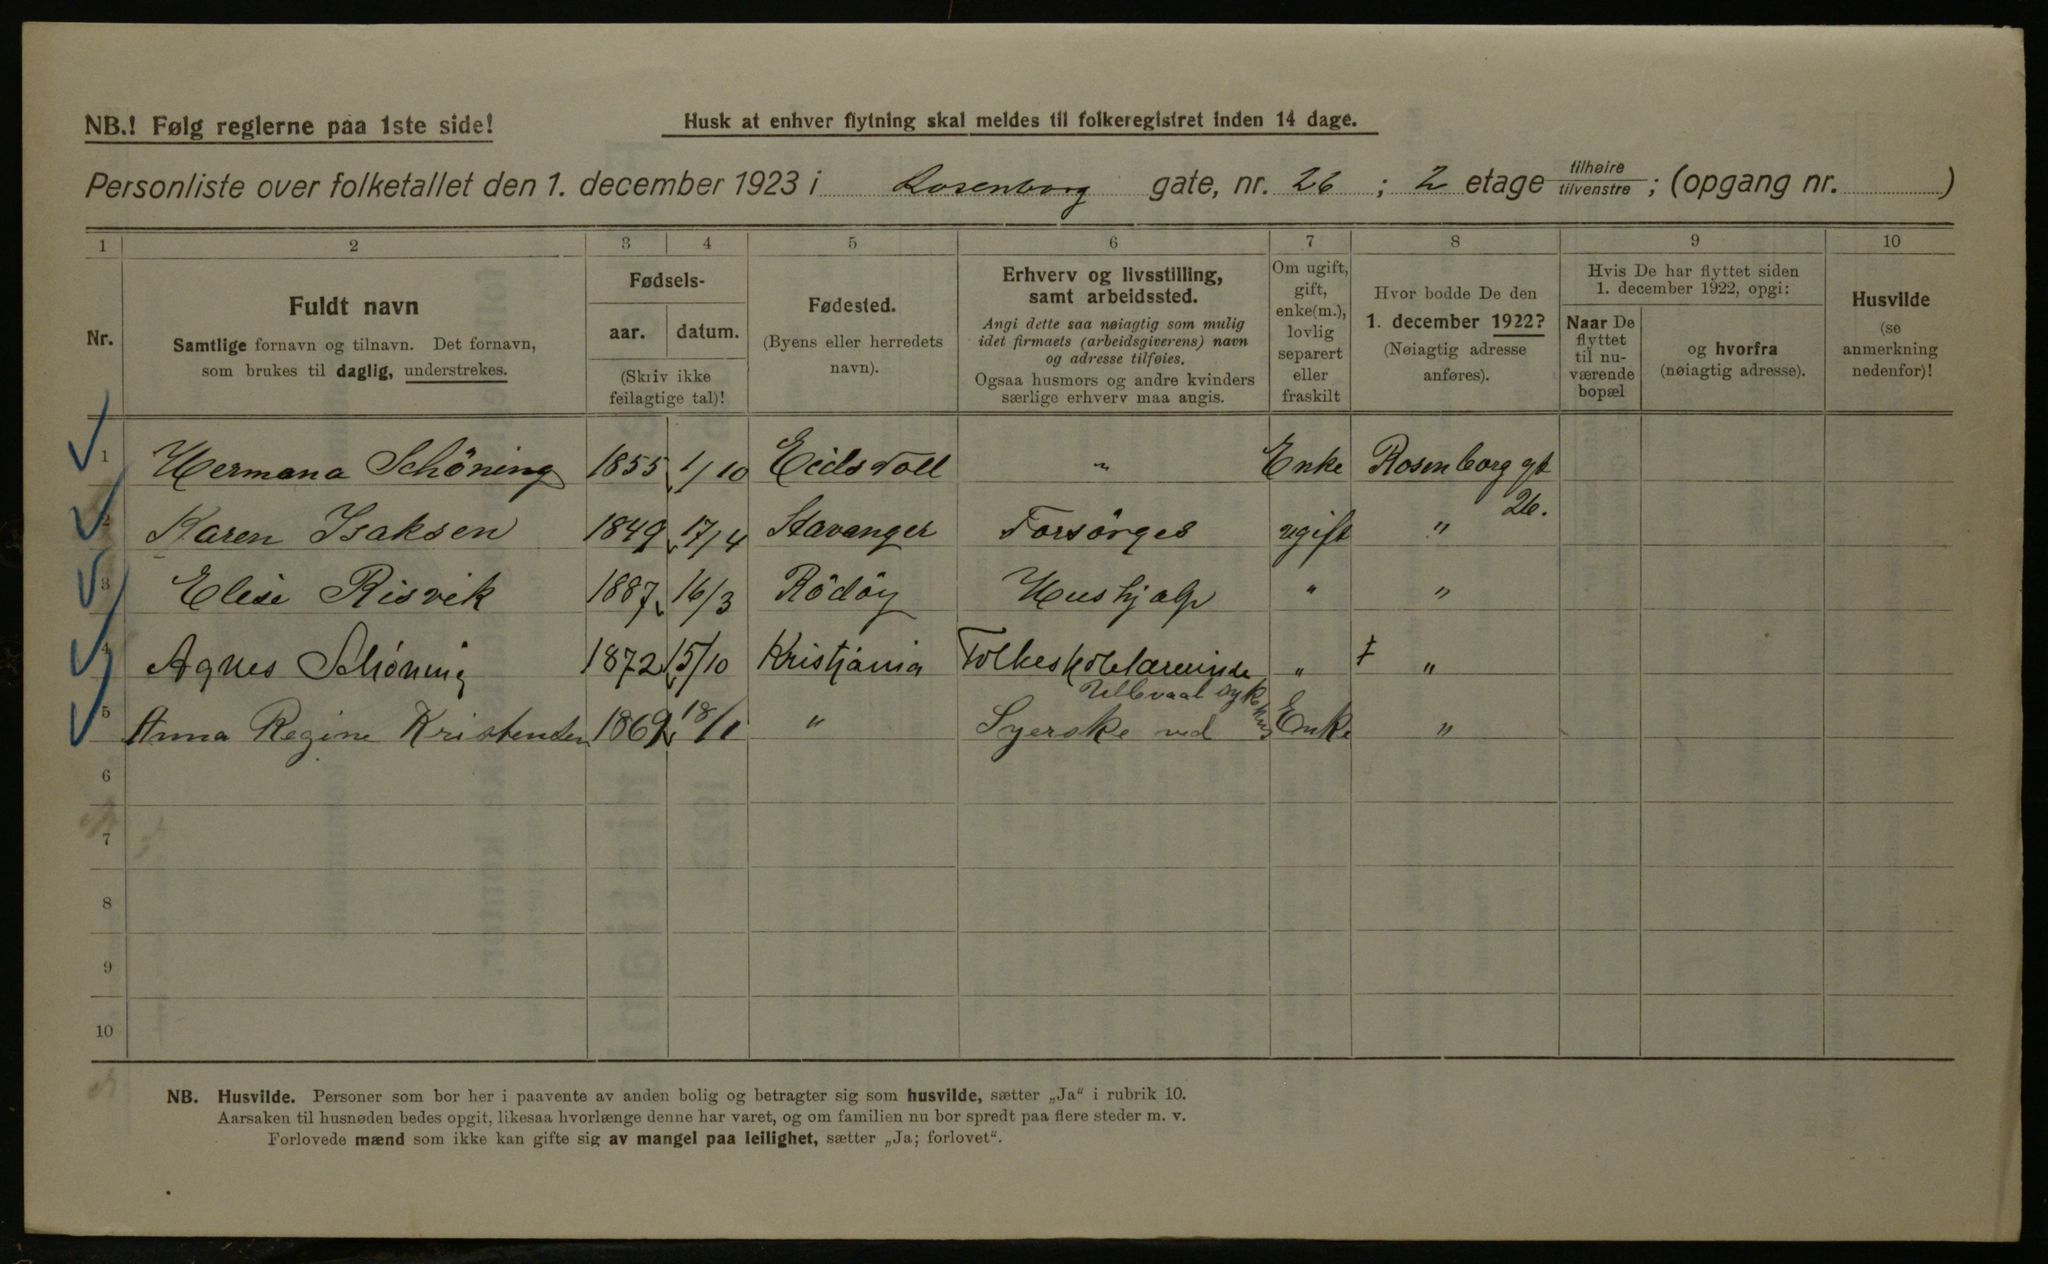 NB.! Følg reglerne paa 1ste side!
Husk at enhver flytning skal meldes til folkeregistret inden 14 dage.
Personliste over folketallet den 1. december 1923 i Rosenborg gate, nr. 26 ; 2 etage tilhøire / tilvenstre ; (opgang nr. )
1 2 3 4 5 6 7 8 9 10
Nr.
Fuldt navn
Samtlige fornavn og tilnavn. Det fornavn,
som brukes til daglig, understrekes.
Fødsels-
aar. datum.
(Skriv ikke
feilagtige tal)!
Fødested.
(Byens eller herredets
navn).
Erhverv og livsstilling,
samt arbeidssted.
Angi dette saa nøiagtig som mulig
idet firmaets (arbeidsgiverens) navn
og adresse tilføies.
Ogsaa husmors og andre kvinders
særlige erhverv maa angis.
Om ugift,
gift,
enke(m.),
lovlig
separert
eller
fraskilt
Hvor bodde De den
1. december 1922?
(Nøiagtig adresse
anføres).
Hvis De har flyttet siden
1. december 1922, opgi:
Naar De
flyttet
til nu-
værende
bopæl
og hvorfra
(nøiagtig adresse).
Husvilde
(se
anmerkning
nedenfor)!
1 Hermana Schöning 1855 1/10 Eidsvoll " Enke Rosenborg gt
26.
2 Karen Isaksen 1849 17/4 Stavanger Forsörges ugift "
3 Elise Risvik 1887 16/3 Rödöy Hushjelp " "
4 Agnes Schöning 1872 15/10 Kristjania Folkeskolelærerinde " "
Ullevaal sykehus
5 Anna Regine Kristensen 1869 18/1 " Syerske ved Enke "
6
7
8
9
10
NB. Husvilde. Personer som bor her i paavente av anden bolig og betragter sig som husvilde, sætter „Ja“ i rubrik 10.
Aarsaken til husnøden bedes opgit, likesaa hvorlænge denne har varet, og om familien nu bor spredt paa flere steder m. v.
Forlovede mænd som ikke kan gifte sig av mangel paa leilighet, sætter „Ja; forlovet“.